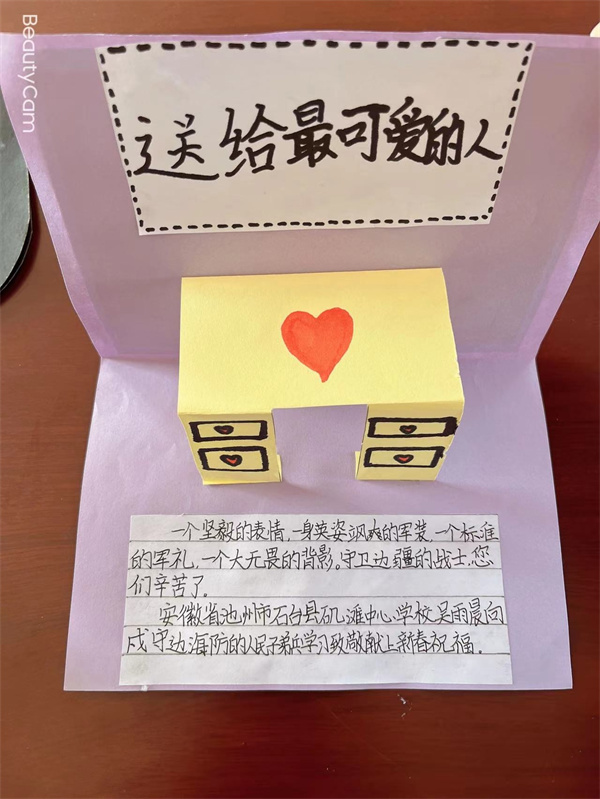 BeautyCam
送给最可爱的人
一个坚毅的表情,一身英姿飒爽的军装,一个标准
的军礼,一个大无畏的背影。守卫边疆的战士,您
们辛苦了。
安徽省池州市石台县矶滩中心学校吴雨晨向
戍守边海防的人民子弟兵学习致敬献上新春祝福.